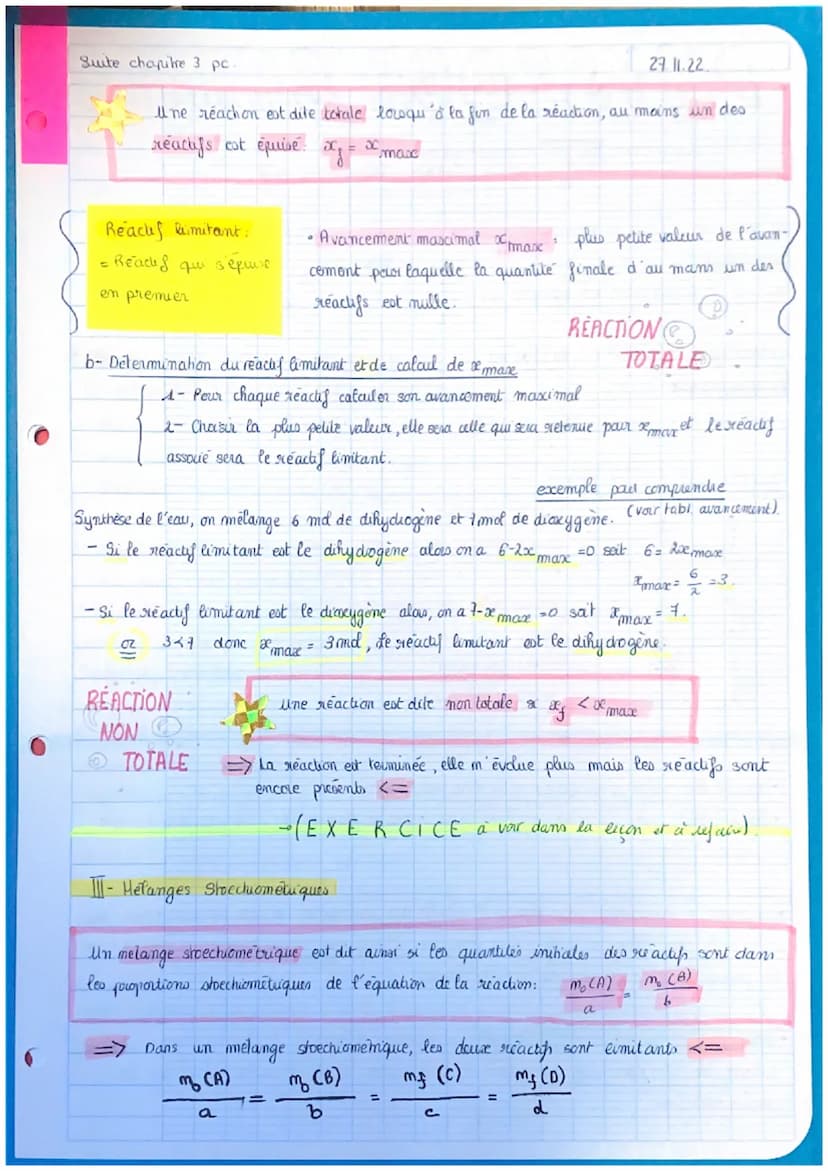 Suite chapitre 3 pc.
27.11.22.
Une réaction est dite totale lorsqu'à la fin de la réaction, au moins un des
réactifs est épuisé. xf = xmax
Réactif limitant :
= Réactif qui s'épuise
en premier
• Avancement maximal xmax : plus petite valeur de l'avan-
cement pour laquelle la quantité finale d'au moins un des
réactifs est nulle.
RÉACTION
TOTALE
b- Détermination du réactif limitant et de calcul de xmax
1- Pour chaque réactif calculer son avancement maximal
2- Choisir la plus petite valeur, elle sera celle qui sera retenue pour xmax et le réactif
associé sera le réactif limitant.
exemple pour comprendre
(voir tabl. avancement).
Synthèse de l'eau, on mélange 6 mol de dihydrogène et 7 mol de dioxygène.
- Si le réactif limitant est le dihydrogène alors on a 6-2xmax =0 soit 6= 2xmax
xmax = 6/2 =3.
- Si le réactif limitant est le dioxygène alors, on a 7-xmax =0 soit xmax = 7.
or 3<7 donc xmax = 3mol, le réactif limitant est le dihydrogène.
RÉACTION
NON
TOTALE
Une réaction est dite non totale si xf < xmax
=> La réaction est terminée, elle n'évolue plus mais les réactifs sont
encore présents <=
→(EXERCICE à voir dans la leçon et à refaire).
III- Mélanges Stoechiométriques
Un mélange stoechiométrique est dit ainsi si les quantités initiales des réactifs sont dans
les proportions stoechiométriques de l'équation de la réaction: n0(A)/a = n0(B)/b
=> Dans un mélange stoechiométrique, les deux réactifs sont limitants <=
n0(A)/a = n0(B)/b = nf(C)/c = nf(D)/d